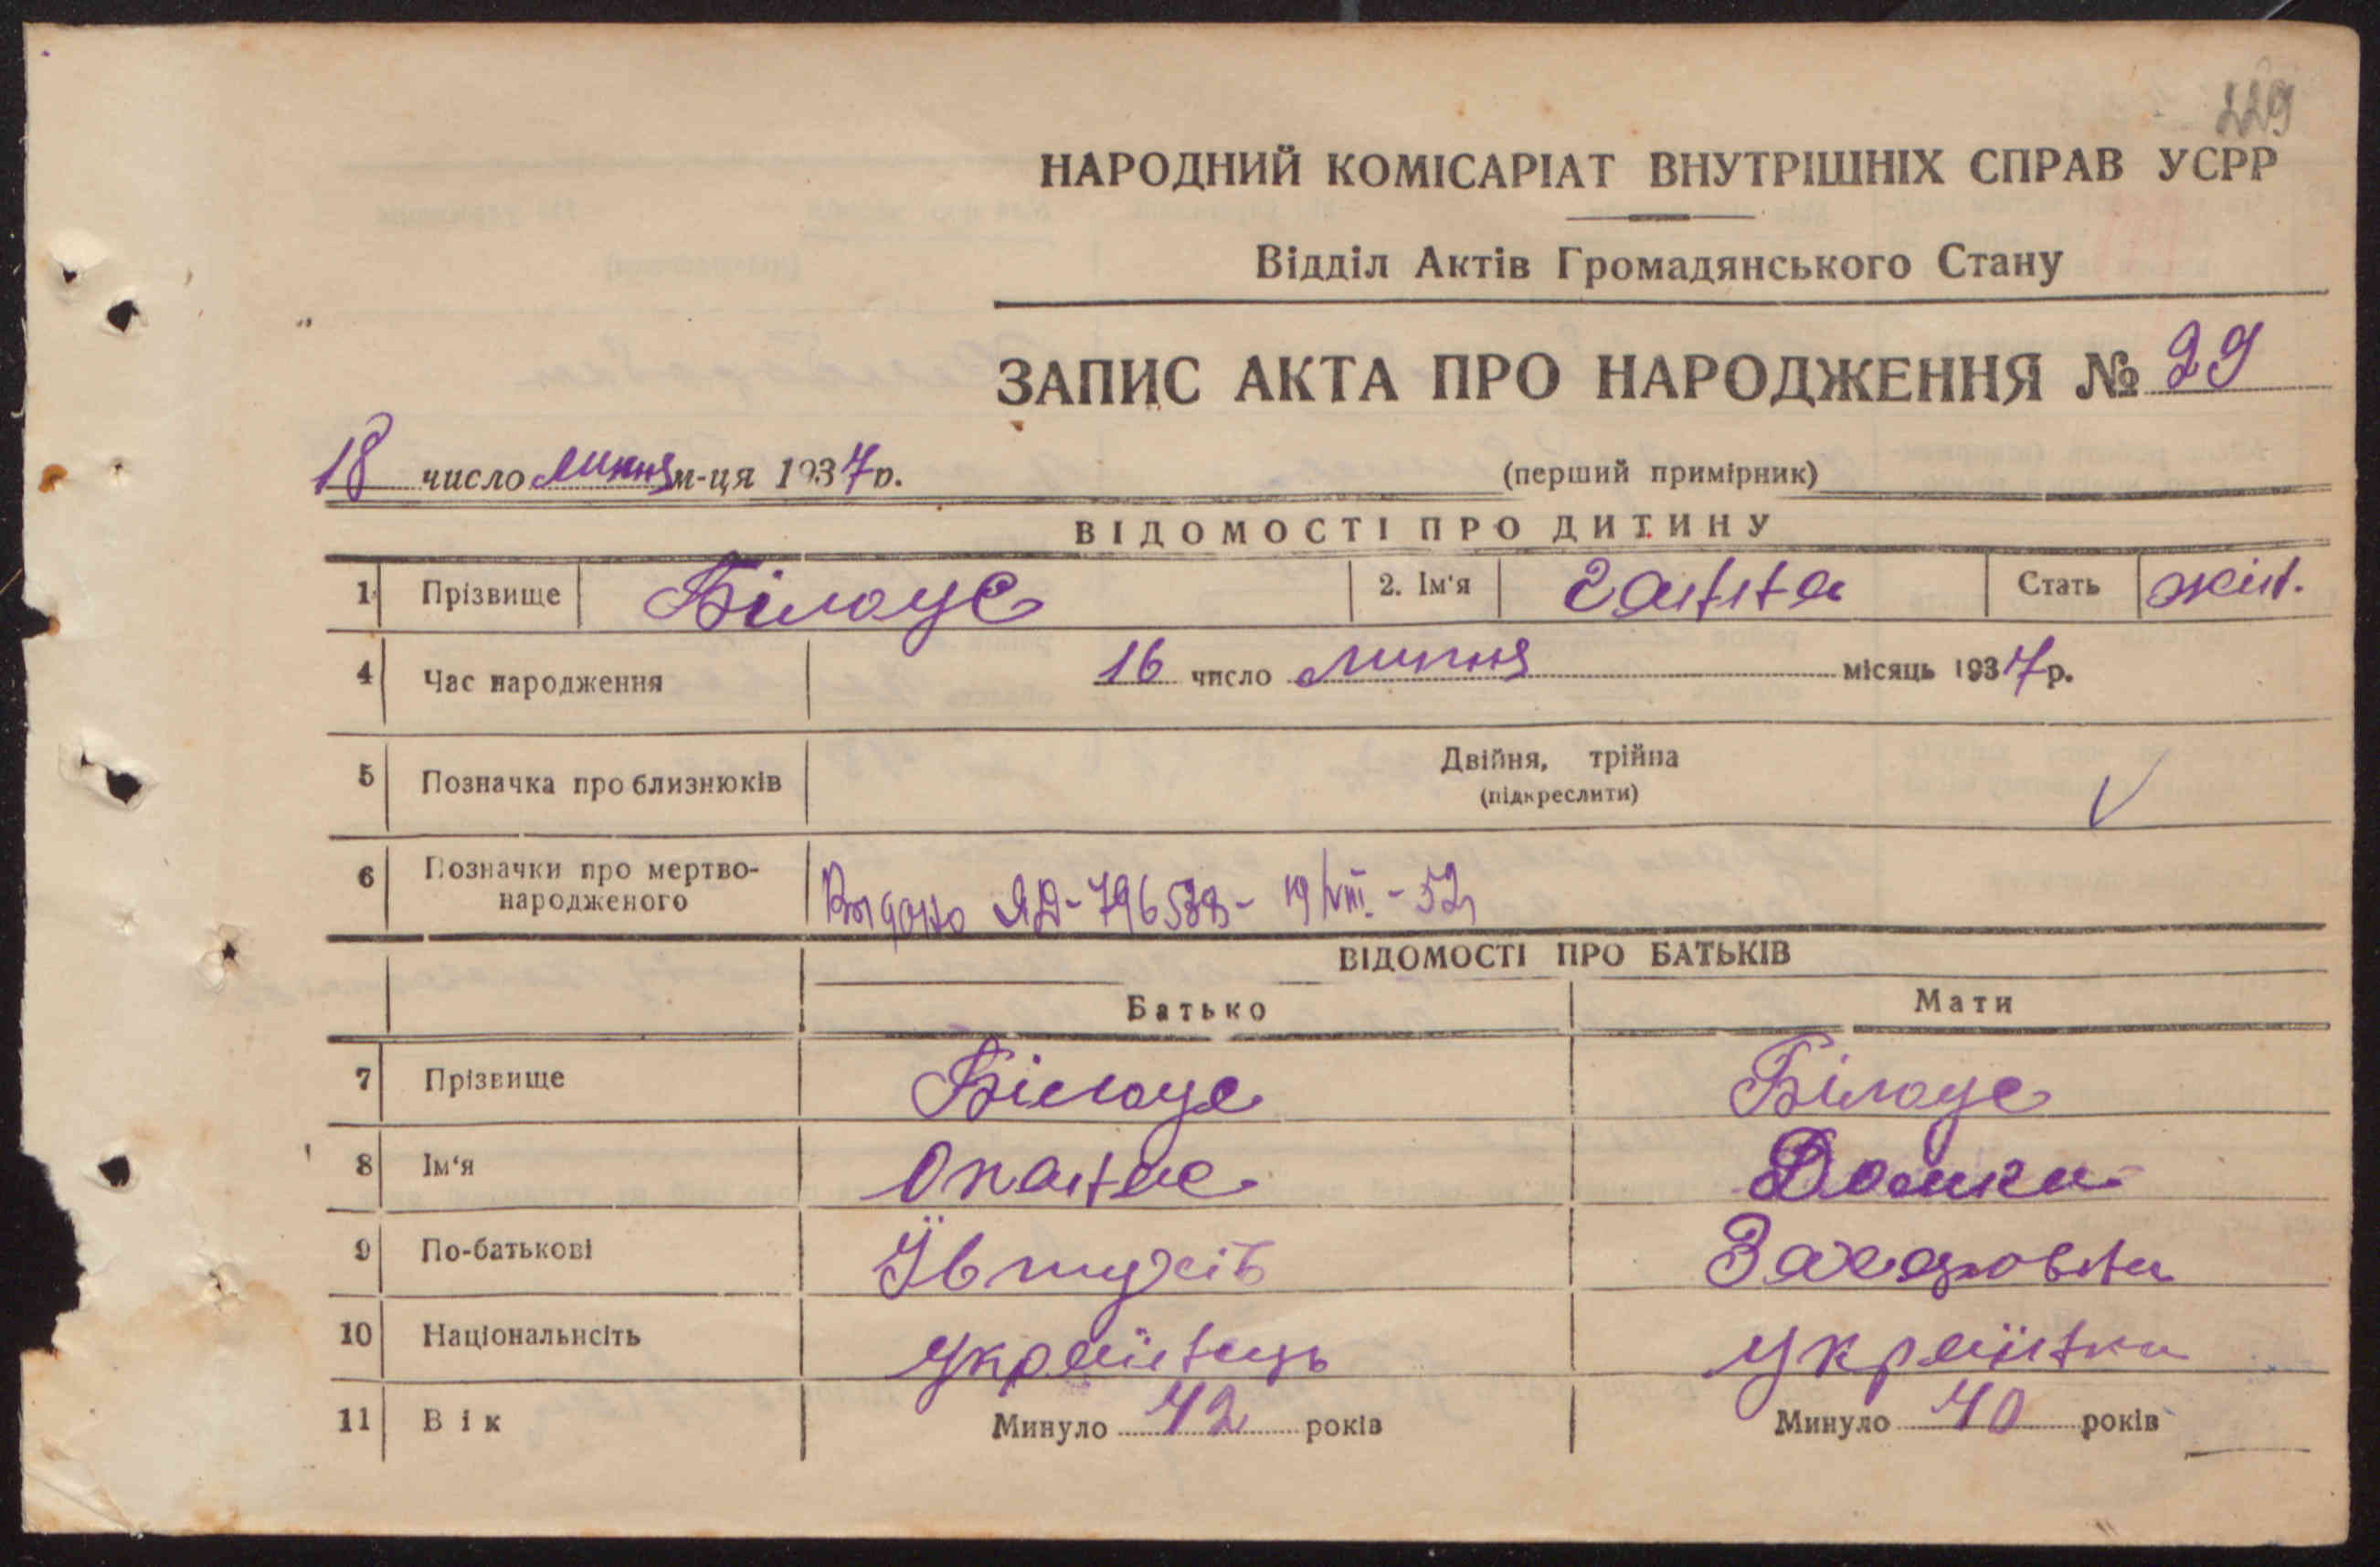 229
НАРОДНИЙ КОМІСАРІАТ ВНУТРІШНІХ СПРАВ УСРР
Відділ Актів Громадянського Стану
ЗАПИС АКТА ПРО НАРОДЖЕННЯ № 29
18 число липня м-ця 1937 р.
(перший примірник)
ВІДОМОСТІ ПРО ДИТИНУ
1 Прізвище Білоус 2. Ім'я Ганна Стать жін.
4 Час народження 16 число липня місяць 1937 р.
5 Позначка про близнюків Двійня, трійна
(підкреслити)
6 Позначки про мертво-
народженого
Выдано ЯД-796538- 19/VIII.-52
ВІДОМОСТІ ПРО БАТЬКІВ
Батько Мати
7 Прізвище Білоус Білоус
8 Ім'я Опанас Домка
9 По-батькові Захаровна
10 Національнсіть українець українка
11 Вік Минуло 42 років Минуло 40 років